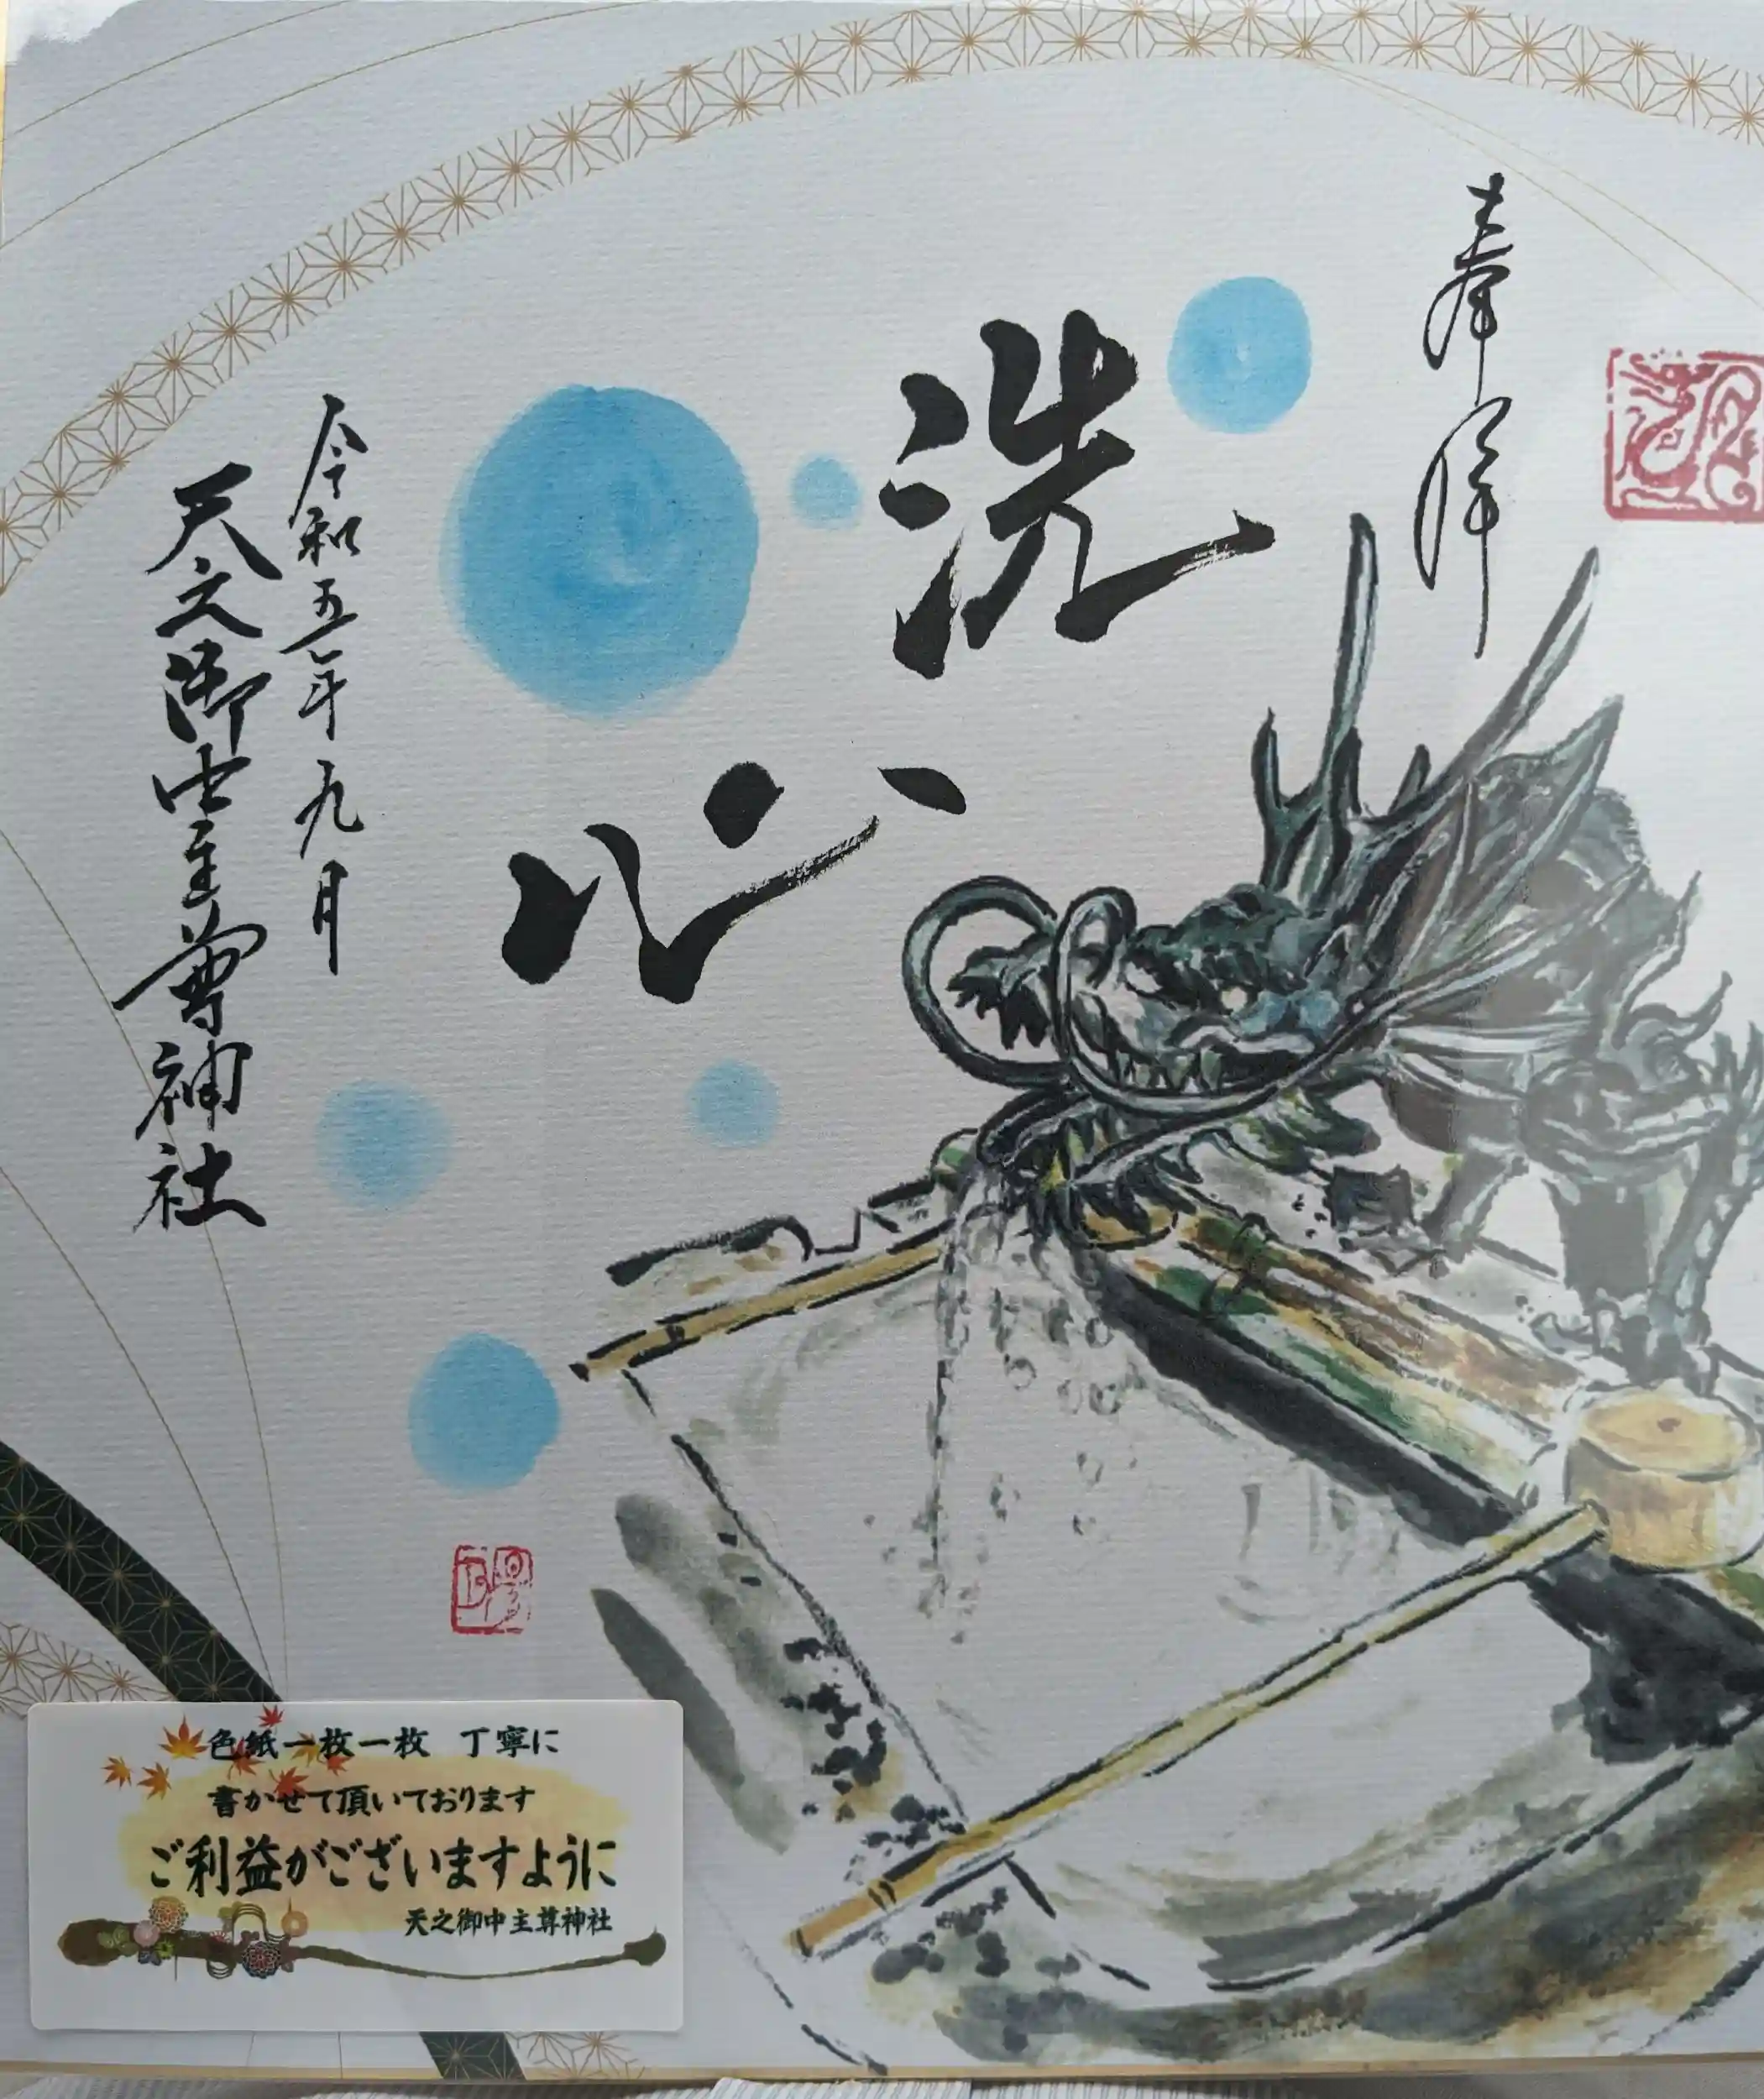 奉拝
洗
心
令和五年九月
天之御中主尊神社
色紙一枚一枚 丁寧に
書かせて頂いております
ご利益がございますように
天之御中主尊神社